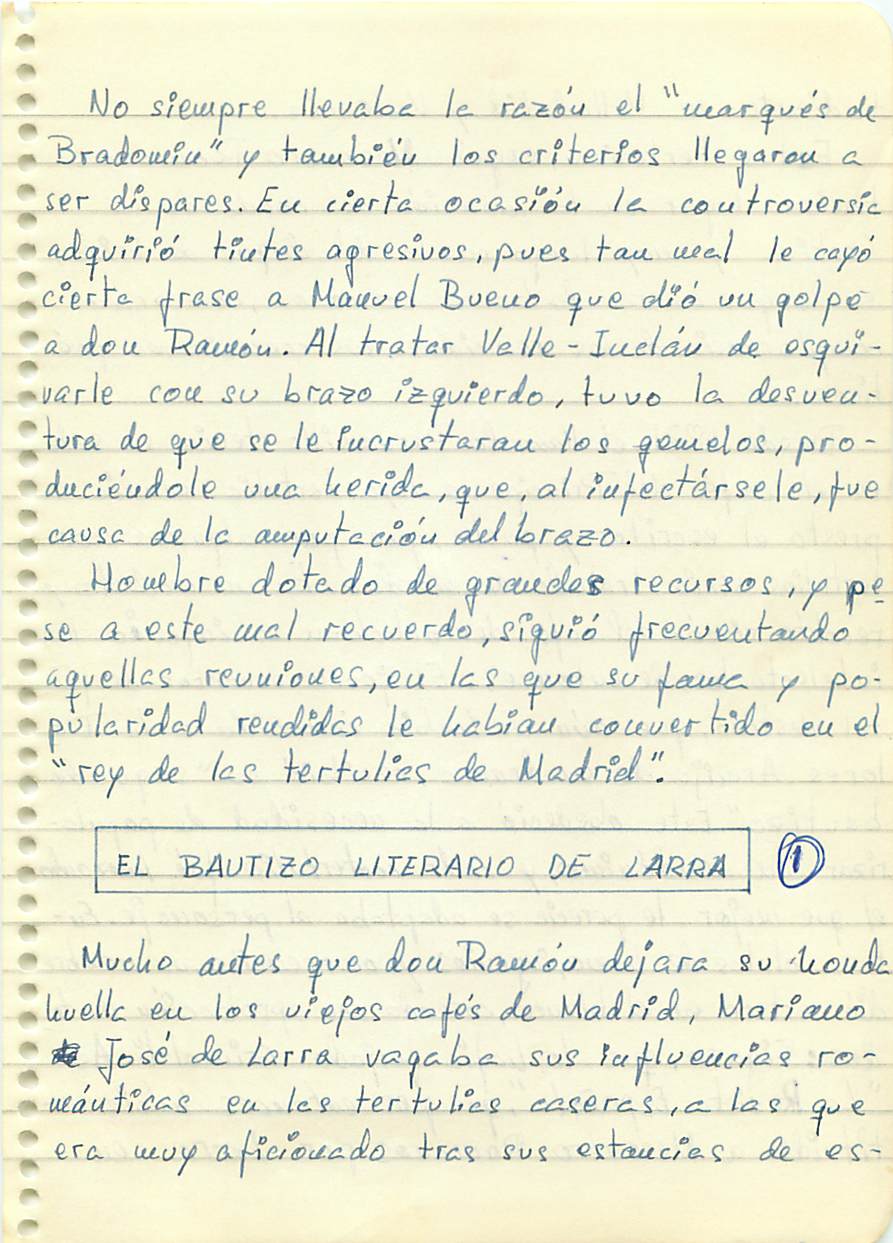 No siempre llevaba la razón el "marqués de
Bradomin" y también los criterios llegaron a
ser dispares. En cierta ocasión la controversia
adquirió tintes agresivos, pues tan mal le cayó
cierta frase a Manuel Bueno que dió un golpe
a don Ramón. Al tratar Valle-Inclán de esqui-
varle con su brazo izquierdo, tuvo la desven-
tura de que se le incrustaran los gemelos, pro-
duciéndole una herida, que, al infectársele, fue
causa de la amputación del brazo.
Hombre dotado de grandes recursos, y pe
se a este mal recuerdo, siguió frecuentando
aquellas reuniones, en las que su fama y po-
pularidad rendidas le habian convertido en el
"rey de las tertulias de Madrid".
EL BAUTIZO LITERARIO DE LARRA 1
Mucho antes que don Ramón dejara su honda
huella en los viejos cafés de Madrid, Mariano
José de Larra vagaba sus influencias ro-
mánticas en las tertulias caseras, a las que
era muy aficionado tras sus estancias de es-